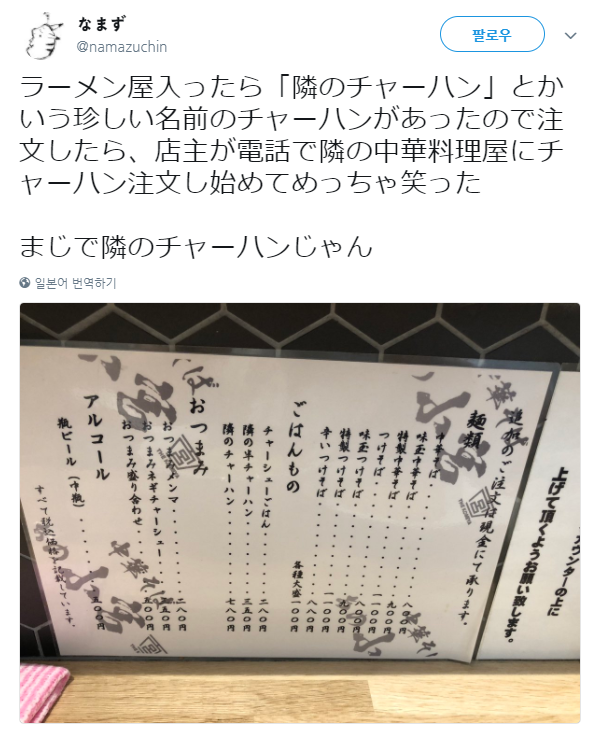 なまず
@namazuchin
팔로우
ラーメン屋入ったら「隣のチャーハン」とか
いう珍しい名前のチャーハンがあったので注
文したら、店主が電話で隣の中華料理屋にチ
ャーハン注文し始めてめっちゃ笑った
まじで隣のチャーハンじゃん
일본어 번역하기
上げて頂くようお願い致します。
カウンターの上に
追加のご注文は現金にて承ります。
麺類
中華そば
味玉中華そば
特製中華そば
つけそば
味玉つけそば
特製つけそば
辛いつけそば
各種大盛一〇〇円
ごはんもの
チャーシューごはん 二八〇円
隣の半チャーハン 三五〇円
隣のチャーハン 七八〇円
おつまみ
おつまみメンマ 二八〇円
おつまみネギチャーシュー
おつまみ盛り合わせ 五〇〇円
アルコール
瓶ビール（中瓶） 五〇〇円
すべて税込価格を記載しています。